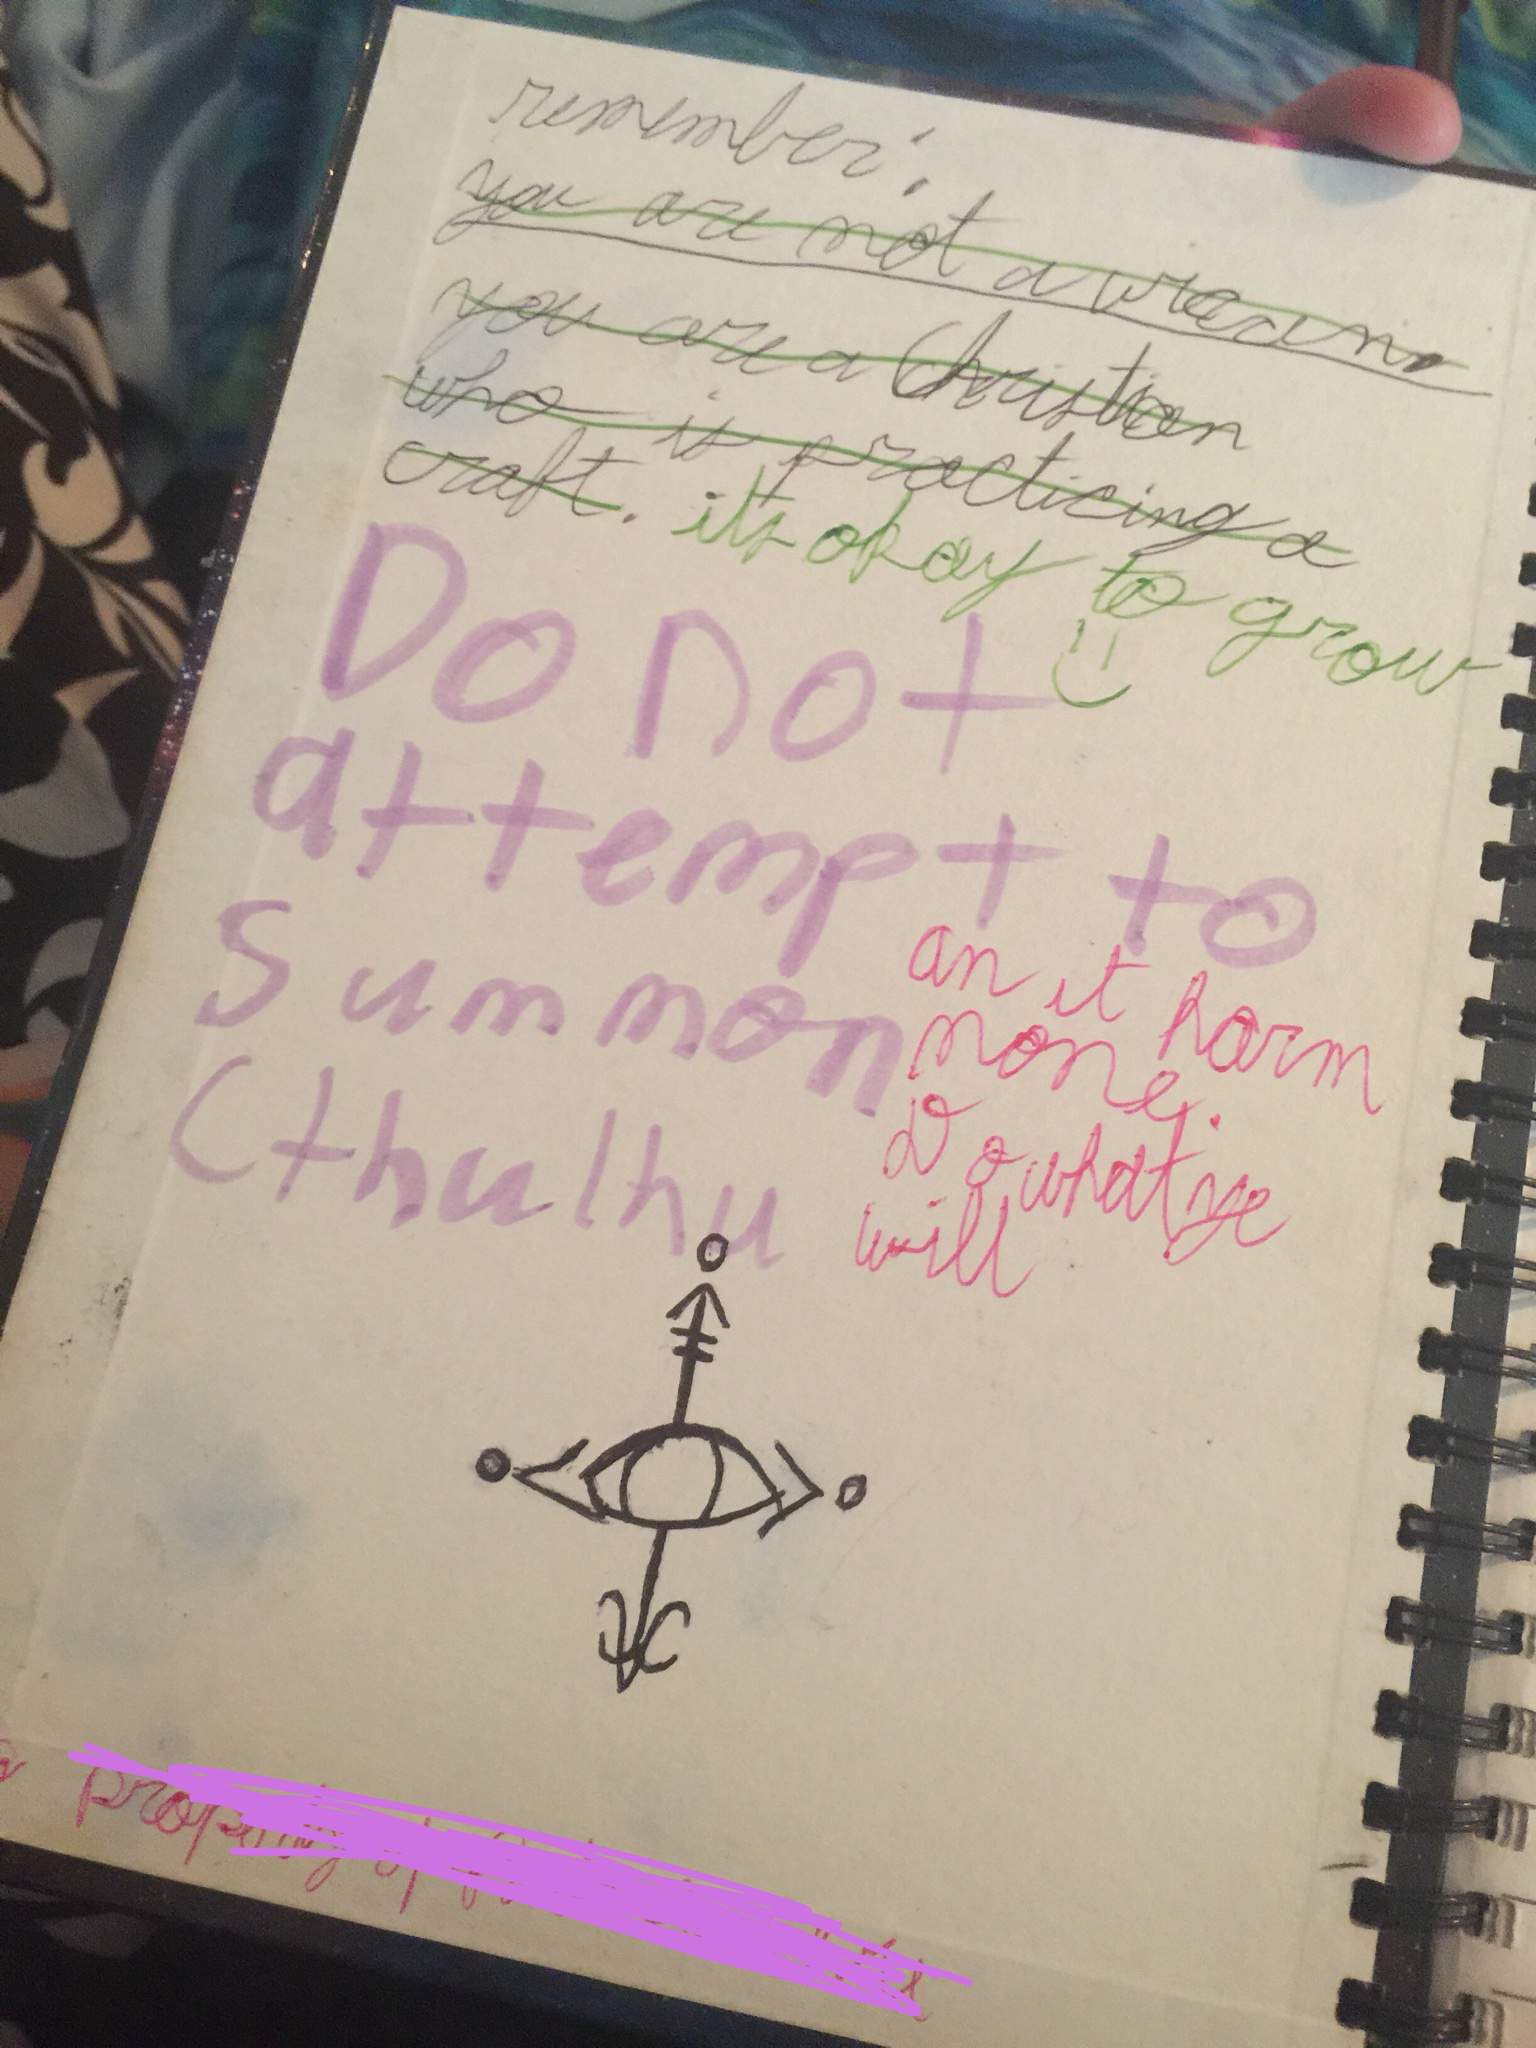 remember:
you are not a wiccan.
you are a Christian
who is practicing a
craft. it's okay to grow
Do not
attempt to
Summon
Cthulhu
an it harm
none.
Do what ye
will
property of